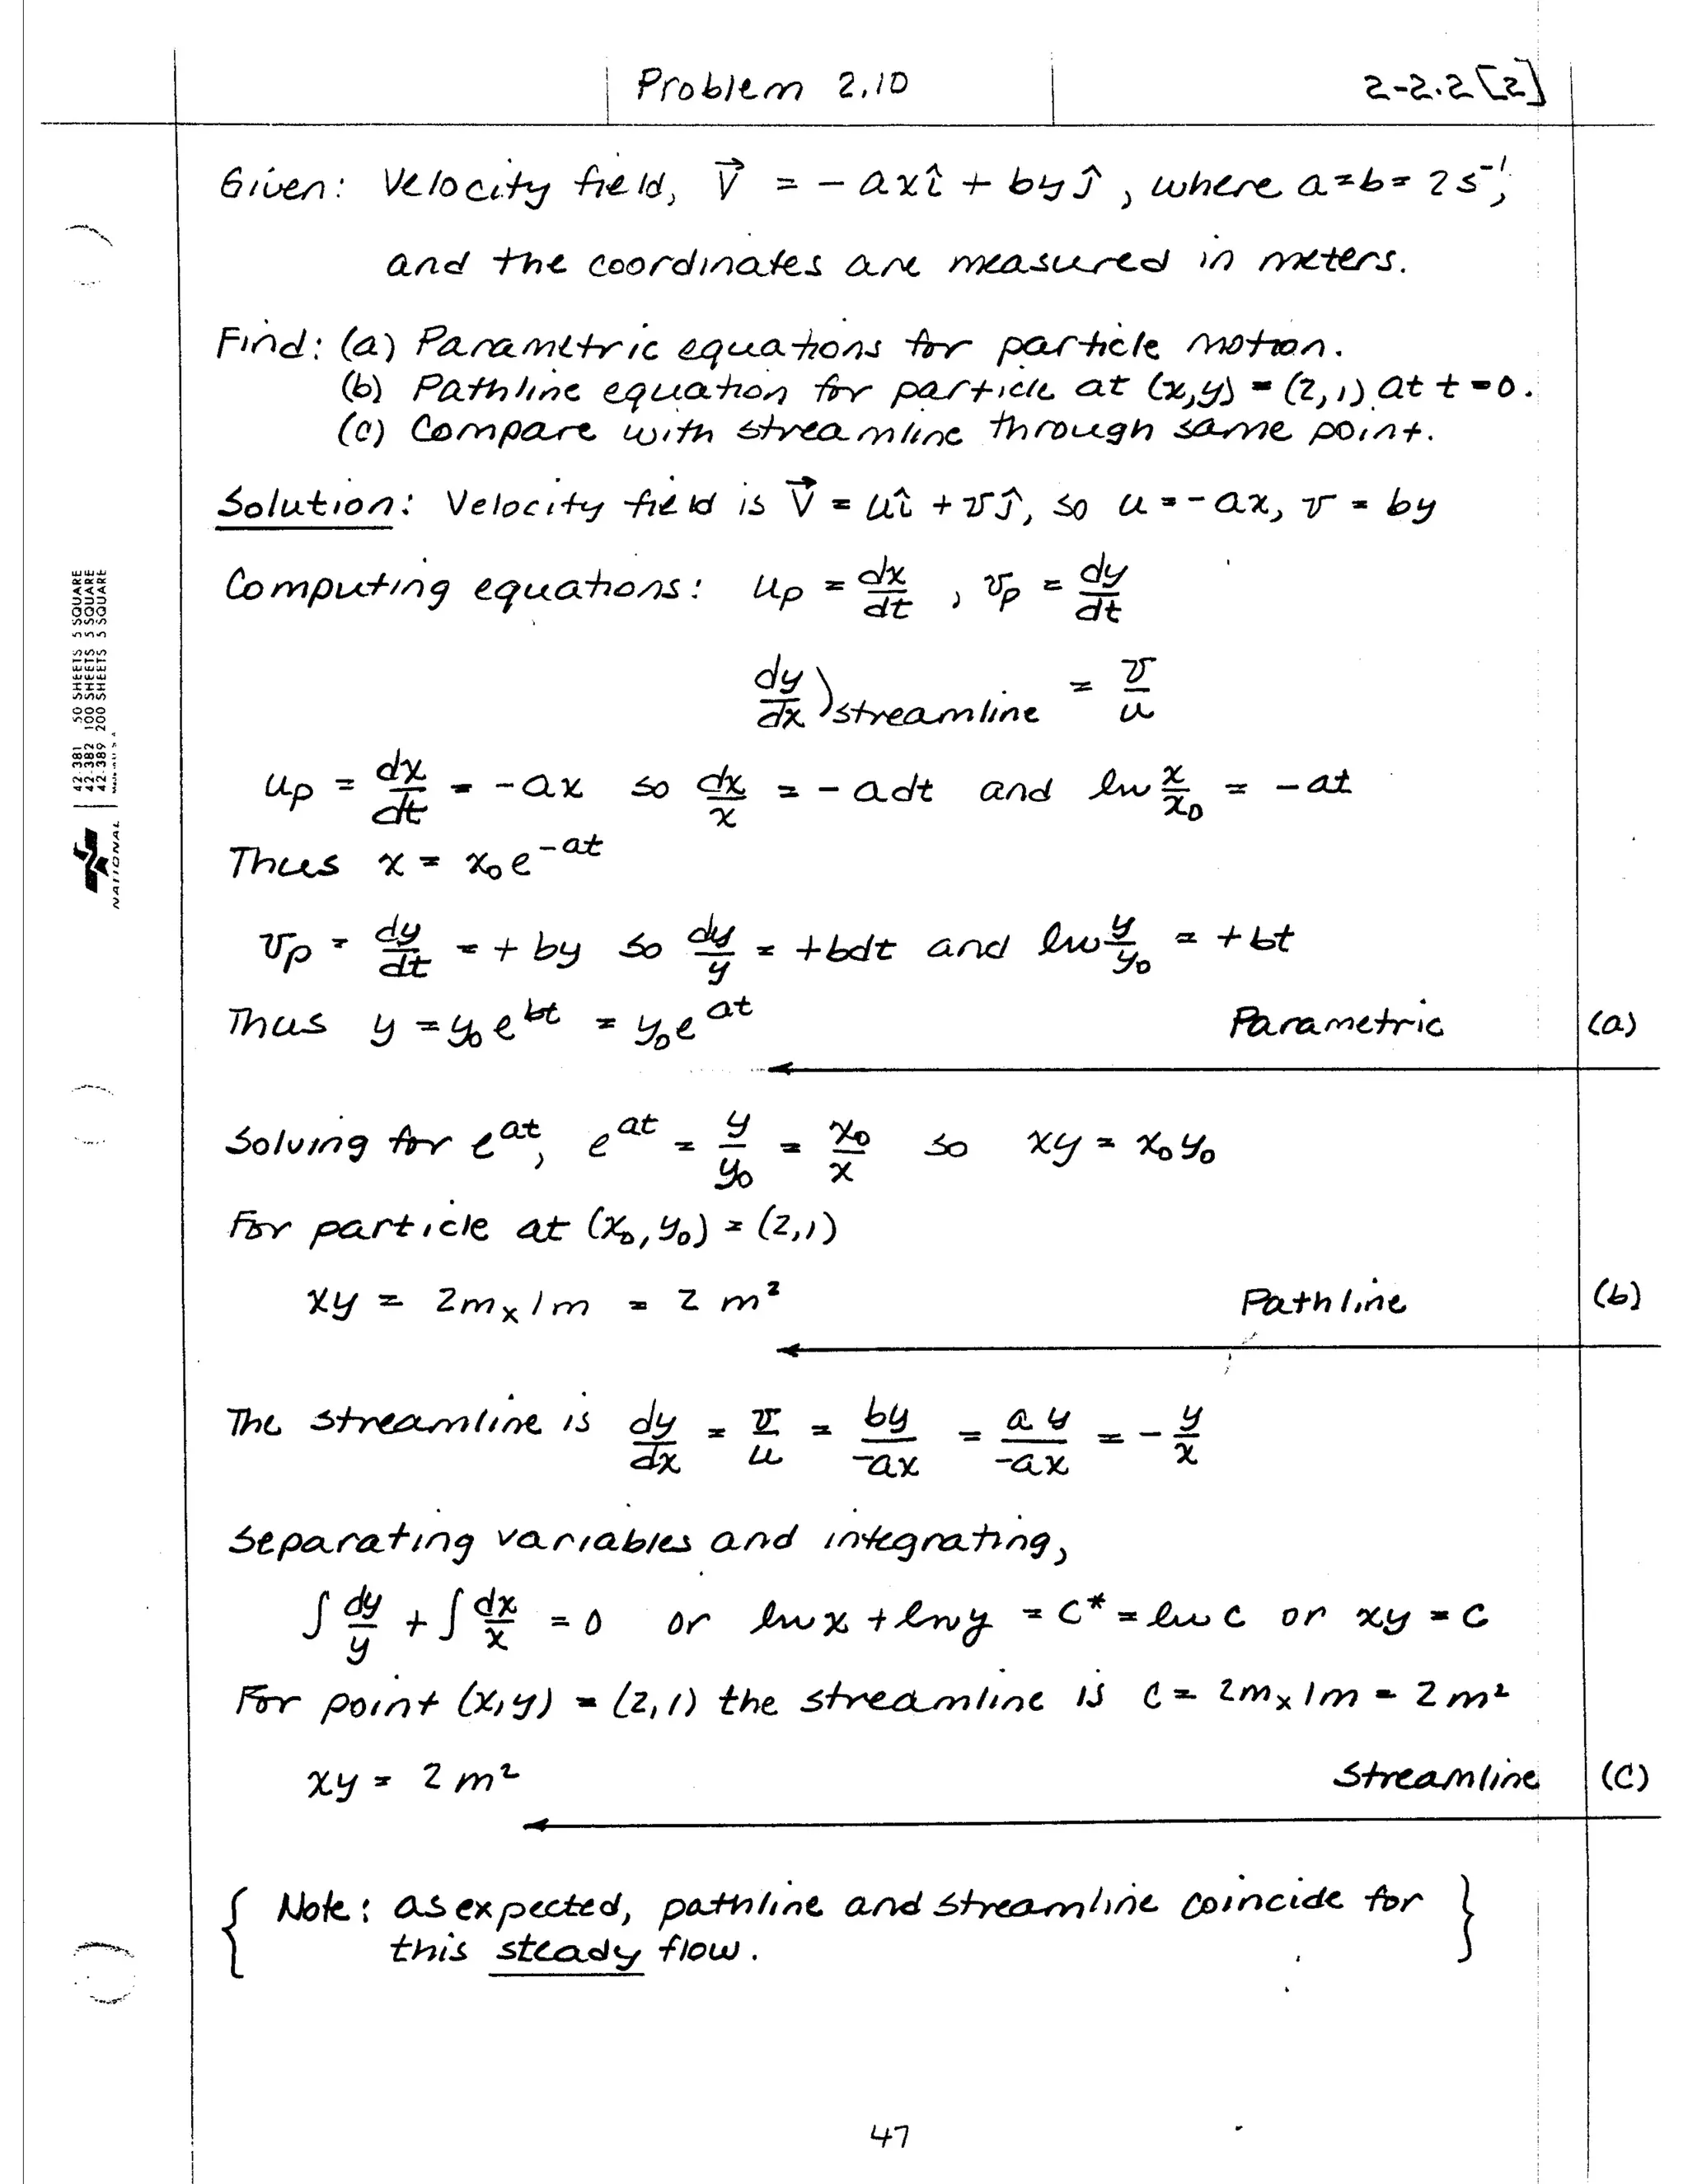 Problem 2.10
2-2.2 [2]
Given: Velocity field, V⃗ = - axî + byĵ, where a=b= 2 s⁻¹,
and the coordinates are measured in meters.
Find: (a) Parametric equations for particle motion.
(b) Pathline equation for particle at (x,y) = (2,1) at t=0.
(c) Compare with streamline through same point.
Solution: Velocity field is V⃗ = uî + vĵ, so u = -ax, v = by
Computing equations: up = dx/dt , vp = dy/dt
dy/dx)streamline = v/u
up = dx/dt = -ax so dx/x = - adt and ln x/x₀ = -at
Thus x = x₀e^-at
vp = dy/dt = + by so dy/y = +bdt and ln y/y₀ = +bt
Thus y = y₀e^bt = y₀e^at Parametric (a)
Solving for e^at, e^at = y/y₀ = x₀/x so xy = x₀y₀
For particle at (x₀, y₀) = (2,1)
xy = 2m x 1m = 2 m² Pathline (b)
The streamline is dy/dx = v/u = by/-ax = ay/-ax = - y/x
Separating variables and integrating,
∫ dy/y + ∫ dx/x = 0 or ln x + ln y = C* = ln c or xy = c
For point (x,y) = (2,1) the streamline is C = 2m x 1m = 2 m²
xy = 2 m² Streamline (c)
{ Note: as expected, pathline and streamline coincide for }
this steady flow.
47
42-381 50 SHEETS 5 SQUARE
42-382 100 SHEETS 5 SQUARE
42-389 200 SHEETS 5 SQUARE
NATIONAL